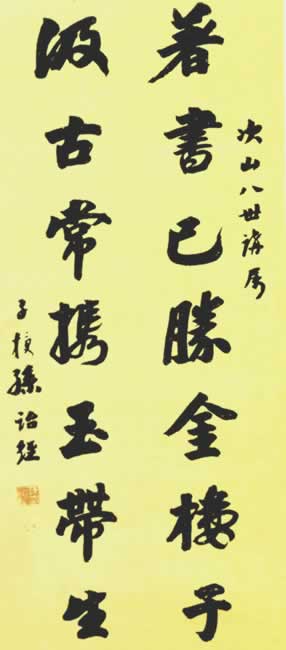 次山八世講属
著書已勝金樓子
汲古常携玉帶生
子授孫詒經